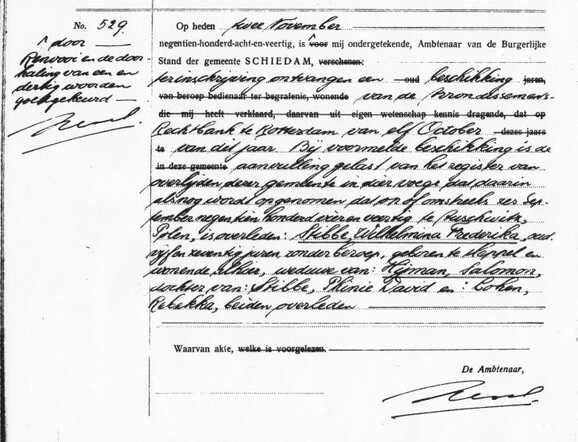 No. 529.
door
Renvooi en de door-
haling van een en
dertig woorden
goedgekeurd
Op heden twee November
negentien-honderd-acht-en-veertig, is voor mij ondergetekende, Ambtenaar van de Burgerlijke
Stand der gemeente SCHIEDAM, verschenen:
ter inschrijving ontvangen een oud beschikking jaren,
van beroep bedienaar ter begrafenis, wonende van de Arrondissements
die mij heeft verklaard, daarvan uit eigen wetenschap kennis dragende, dat op
Rechtbank te Rotterdam van elf October dezes jaars
te van dit jaar. Bij voormelde beschikking is de
in deze gemeente aanvulling gelast van het register van
overlijden dezer gemeente in dier voege dat daarin
alsnog wordt opgenomen dat op of omstreeks zes Sep-
tember negentien honderd vier en veertig te Auschwitz,
Polen, is overleden: Stibbe, Wilhelmina Frederika, oud
vijf en zeventig jaren, zonder beroep, geboren te Meppel en
wonende alhier, weduwe van: Hijman, Salomon,
dochter van: Stibbe, Phinie David en: Cohen,
Rebekka, beiden overleden
Waarvan akte, welke is voorgelezen.
De Ambtenaar,